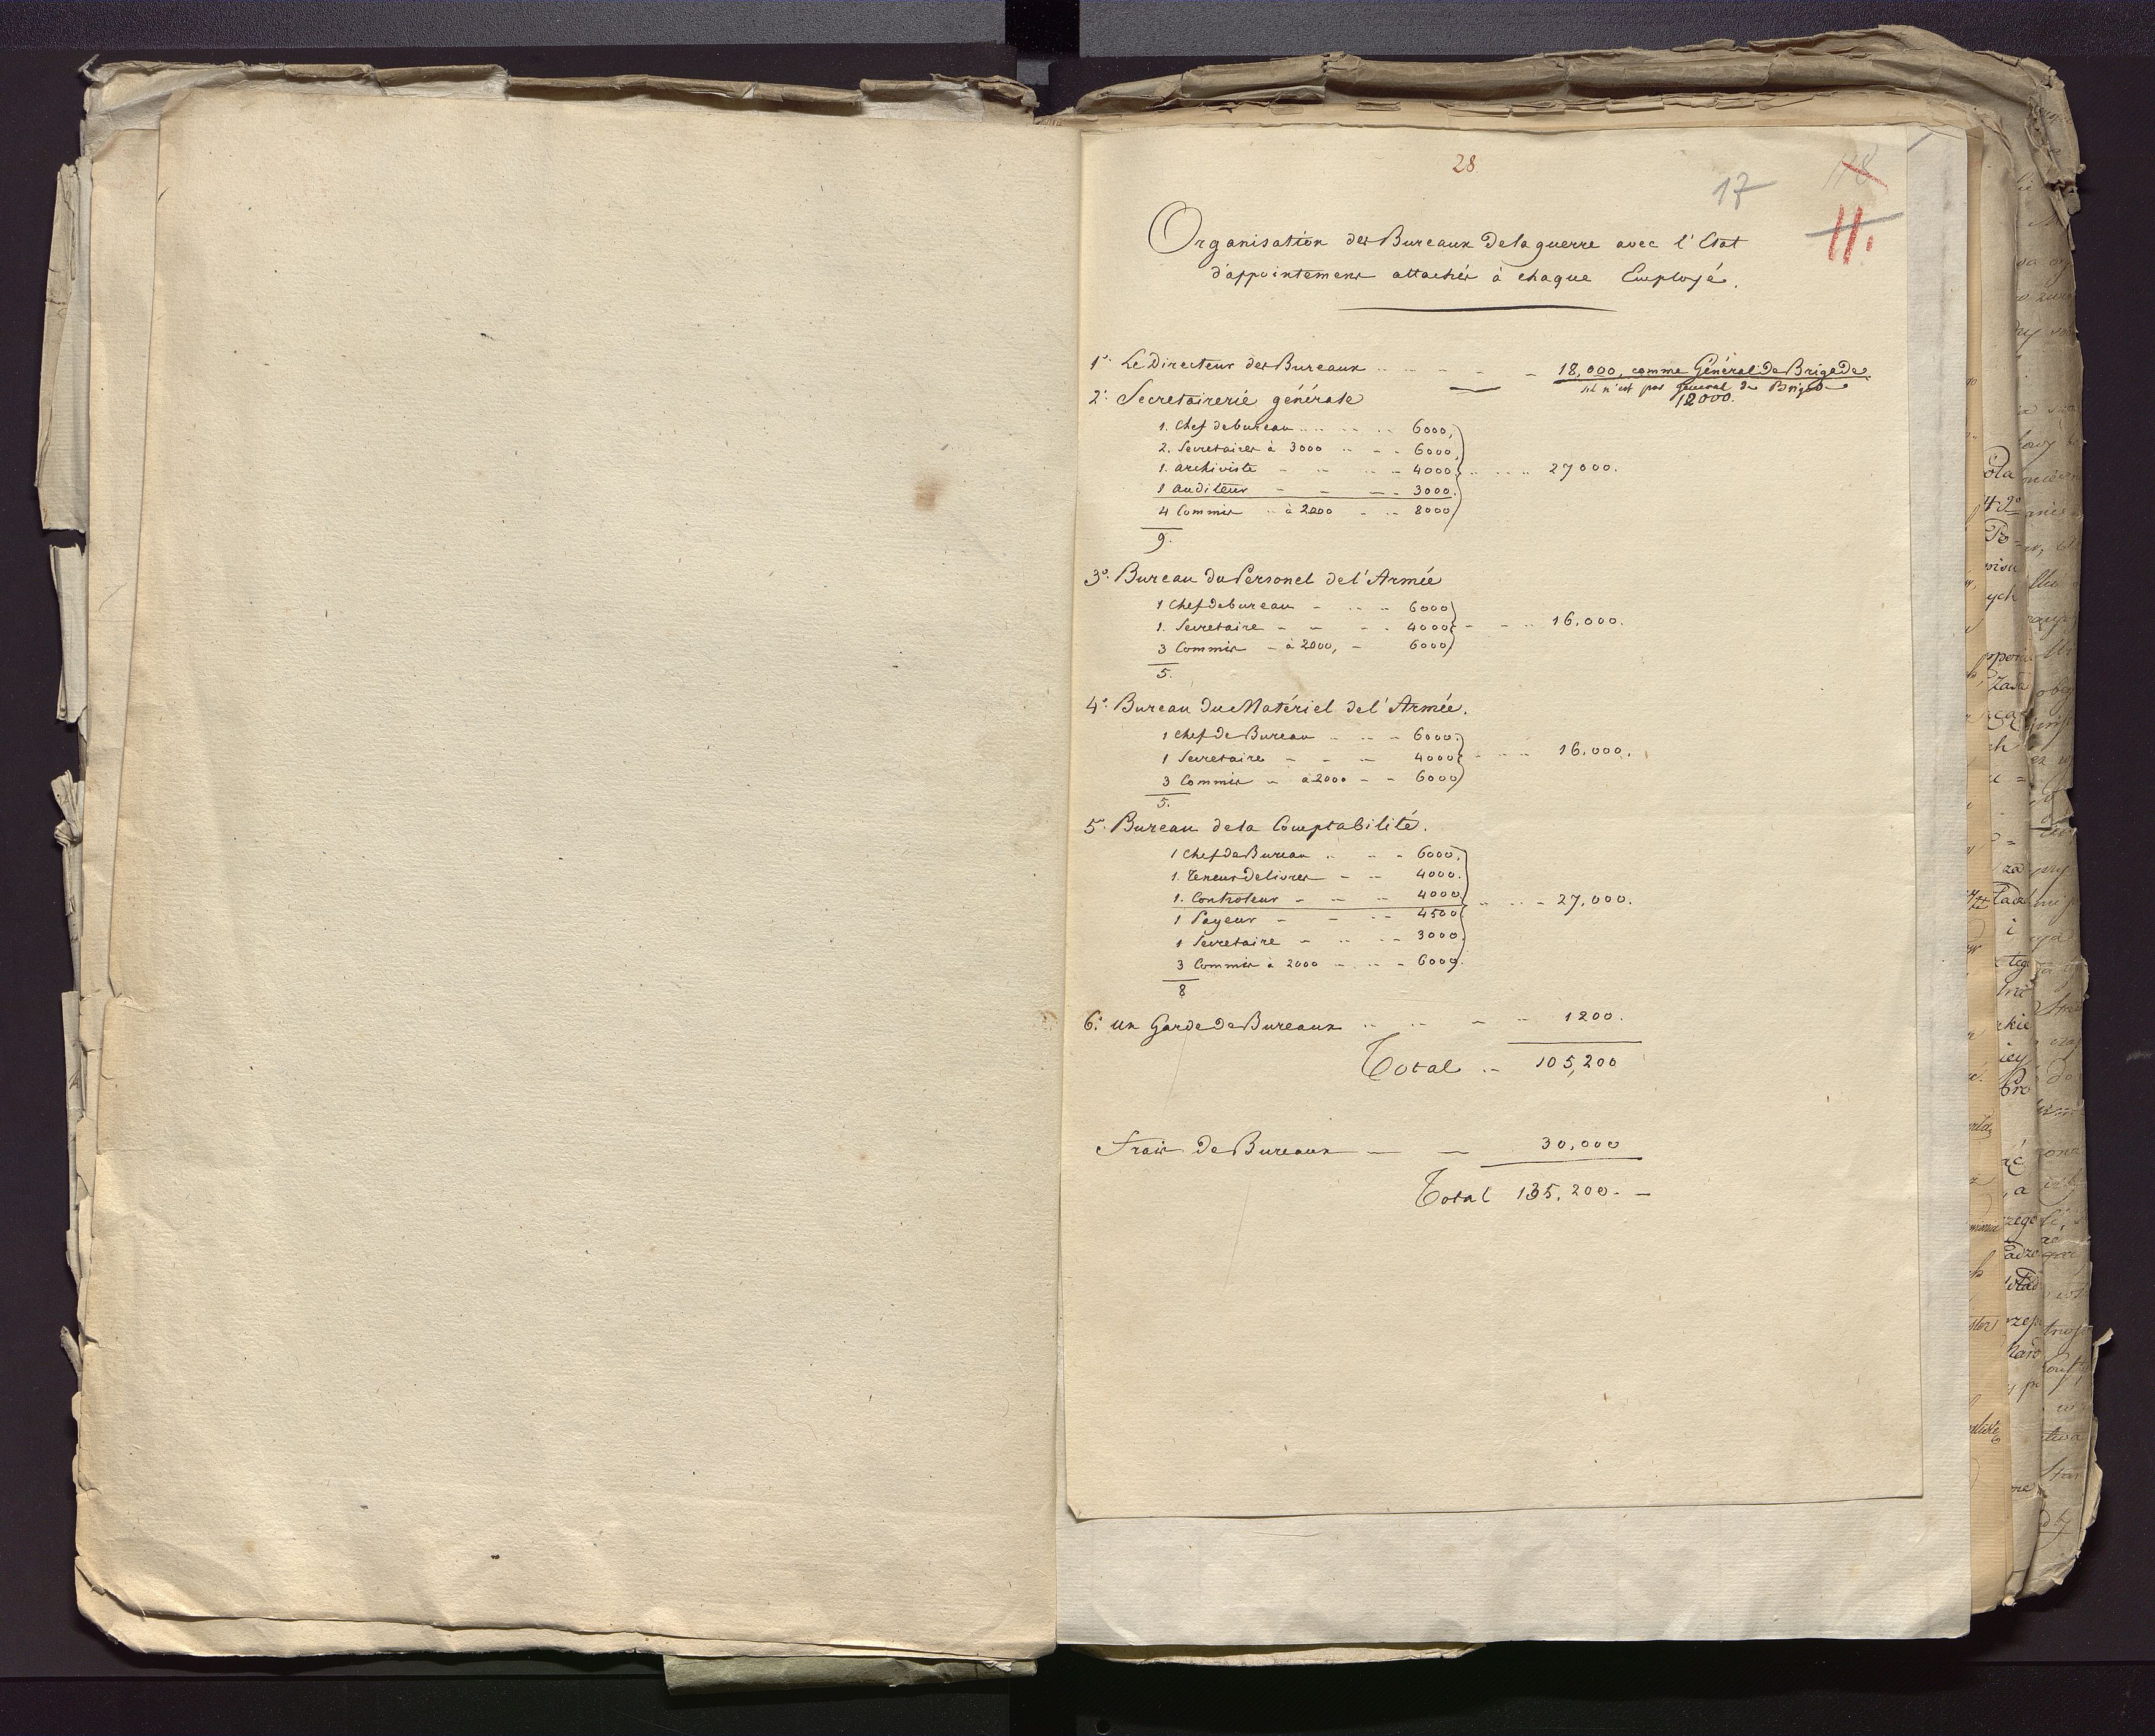 28
17
118
11.
Organisation des Bureaux de la guerre avec l'Etat
d'appointemens attachés à chaque Employé.
1º. Le Directeur des Bureaux .. .. - - - 18,000, comme Général de Brigade.
s'il n'est pas général de Brigade
12000.
2º. Secretairerie générale
1. Chef de bureau .. .. .. 6000,
2. Secretaires à 3000 .. - - 6000,
1. archiviste - .. .. - 4000. .. .. 27000.
1 auditeur - - - - 3000.
4 Commis .. à 2000 - .. 8000
9.
3º. Bureau du Personel de l'Armée
1 Chef de bureau - .. - 6000
1. Secretaire - - - . 4000 - - .. 16,000.
3 Commis - à 2000, - 6000
5.
4º. Bureau du Matériel de l'Armée.
1 Chef de Bureau .. .. - 6000.
1 Secretaire - - - 4000 - .. - 16,000.
3 Commis - à 2000 - - 6000
5.
5º. Bureau de la Comptabilité.
1 Chef de Bureau .. - - 6000,
1. Teneur de livres - - 4000.
1. Controleur - - - 4000.
1 Payeur - - .. - 4500 .. .. - 27,000.
1 Secretaire - .. - - 3000
3 Commis à 2000 - .. - 6000.
8
6º. un Garde de Bureaux .. .. - - 1200.
Total .. 105,200
Frais de Bureaux — — 30,000
Total 135,200. —